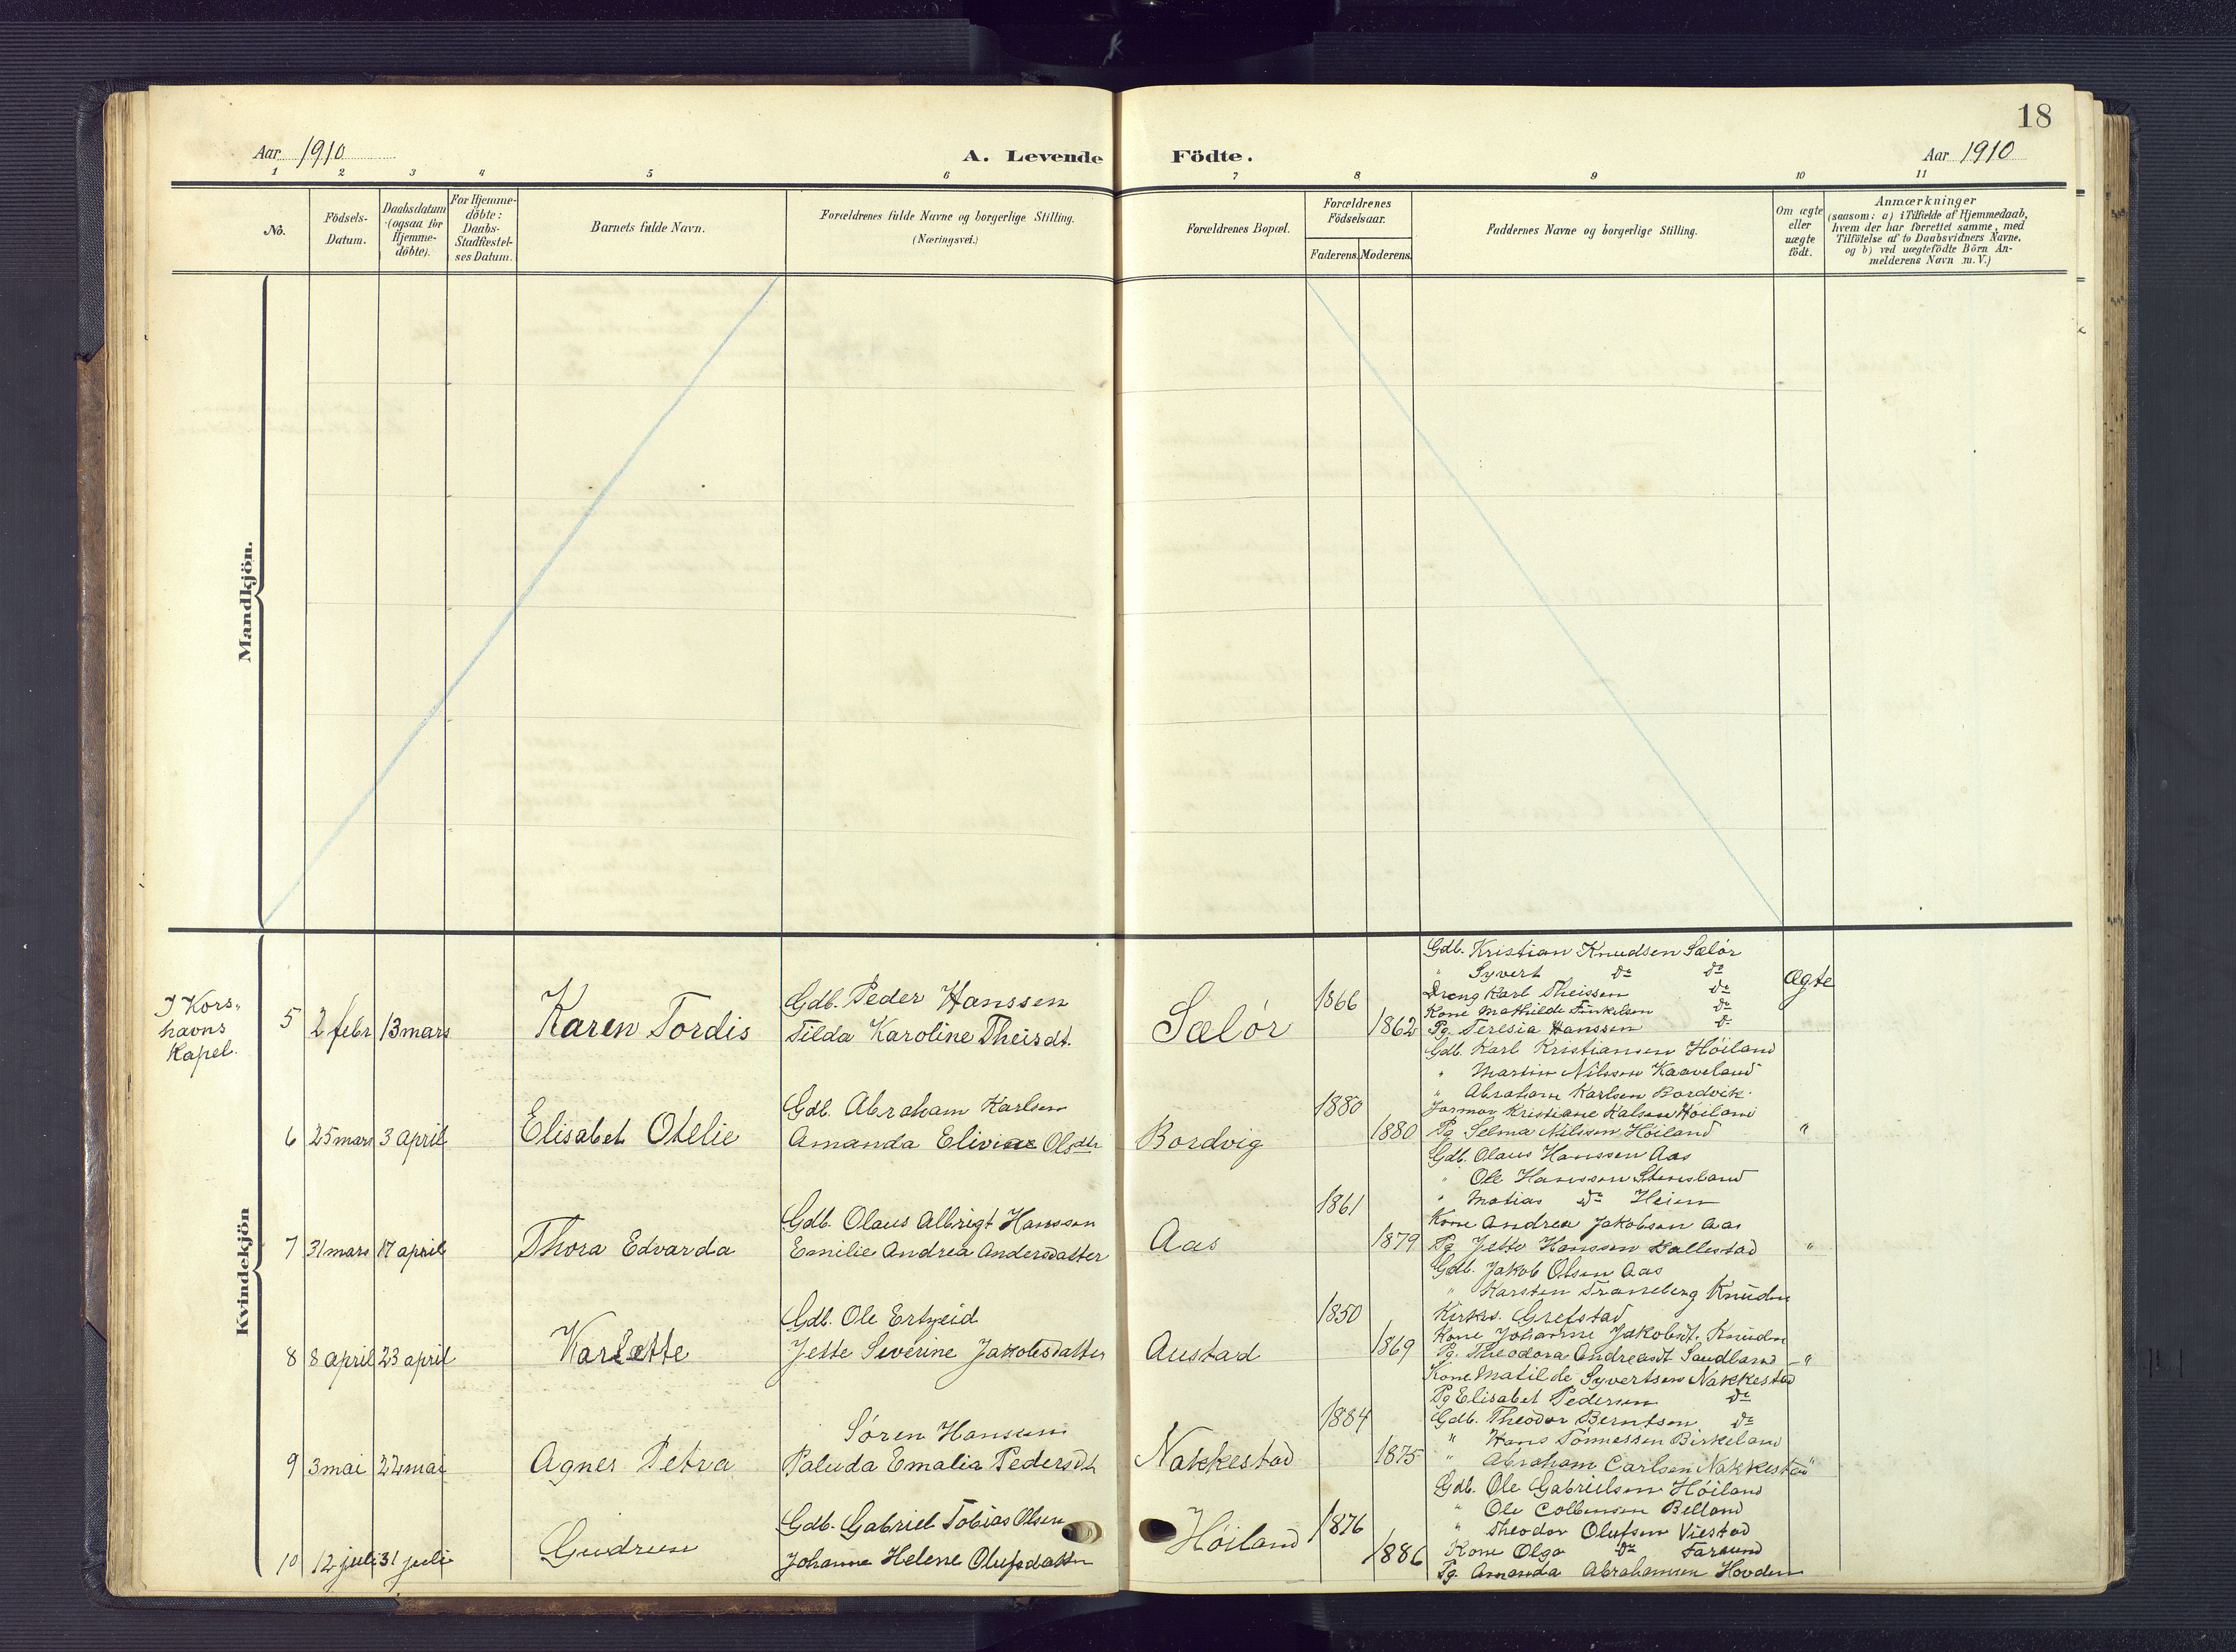 18
Aar 1910
A. Levende Födte.
Aar 1910
1 2 3 4 5 6 7 8 9 10 11
No.
Födsels-Datum.
Daabsdatum (ogsaa for Hjemme-döbte).
For Hjemme-döbte: Daabs-Stadfæstel-ses Datum.
Barnets fulde Navn.
Forældrenes fulde Navne og borgerlige Stilling.
(Næringsvei.)
Forældrenes Bopæl.
Forældrenes Födselsaar.
Faderens. Moderens.
Faddernes Navne og borgerlige Stilling.
Om ægte eller uægte födt.
Anmærkninger
(saasom: a) i Tilfælde af Hjemmedaab,
hvem der har forrettet samme, med
Tilföielse af to Daabsvidners Navne,
og b) ved uægtefödte Börn An-
melderens Navn m. V.)
Mandkjön.
Kvindekjön
I Kors-
havns
Kapel.
5 2 febr 13 mars Karen Tordis
Gdb. Peder Hanssen
Tilda Karoline Theisdt.
Sælør
1866
1862
Gdb. Kristian Knudsen Sælør
" Syvert do do
Dreng Karl Theissen do
Kone Mathilde Tinkelsen do
Pg. Teresia Hanssen do
Ægte
6 25 mars 3 april Elisabet Otelie
Gdb. Abraham Karlsen
Amanda Elivine Olsdtr
Bordvig
1880
1880
Gdb. Karl Kristiansen Høiland
" Martin Nilsson Kaaveland
" Abraham Karlsen Bordvik
Jormor Kristiane Kalsen Høiland
Pg Selma Nilsson Høiland
"
7 31 mars 17 april Thora Edvarda
Gdb. Olaus Albrigt Hanssen
Emilie Andrea Andersdatter
Aas
1861
1879
Gdb. Olaus Hanssen Aas
" Ole Hanssen Stensland
" Matias do Heien
Kone Andrea Jakobsen Aas
Pg Jette Hanssen Hallestad
"
8 8 april 23 april Karlotte
Gdb. Ole Ertzeid
Jette Severine Jakobsdatter
Austad
1850
1869
Gdb. Jakob Olsen Aas
" Karsten Traneberg Knudn
Kirkes. Grefstad
Kone Johanne Jakobsdt. Knudn
Pg. Theodora Andreasdt Saudland
"
9 3 mai 22 mai Agnes Petra
Søren Hanssen
Paluda Emalia Pedersdtr
Nakkestad
1884
1875
Kone Matilde Syvertsen Nakkestad
Pg Elisabet Pedersen do
Gdb. Theodor Berntsen do
" Hans Tönnessen Birkeland
" Abraham Carlsen Nakkestad
"
10 12 juli 31 juli Gudrun
Gdb. Gabriel Tobias Olsen
Johanne Helene Olufsdatter
Høiland
1876
1886
Gdb. Ole Gabrielsen Höiland
" Ole Colbensen Belland
" Theodor Olufsen Viestad
Kone Olga do Farsund
Pg. Amanda Abrahamsen Hovden